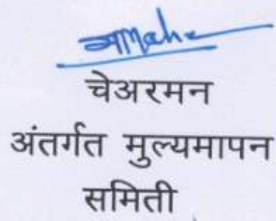 चेअरमन
अंतर्गत मुल्यमापन
समिती